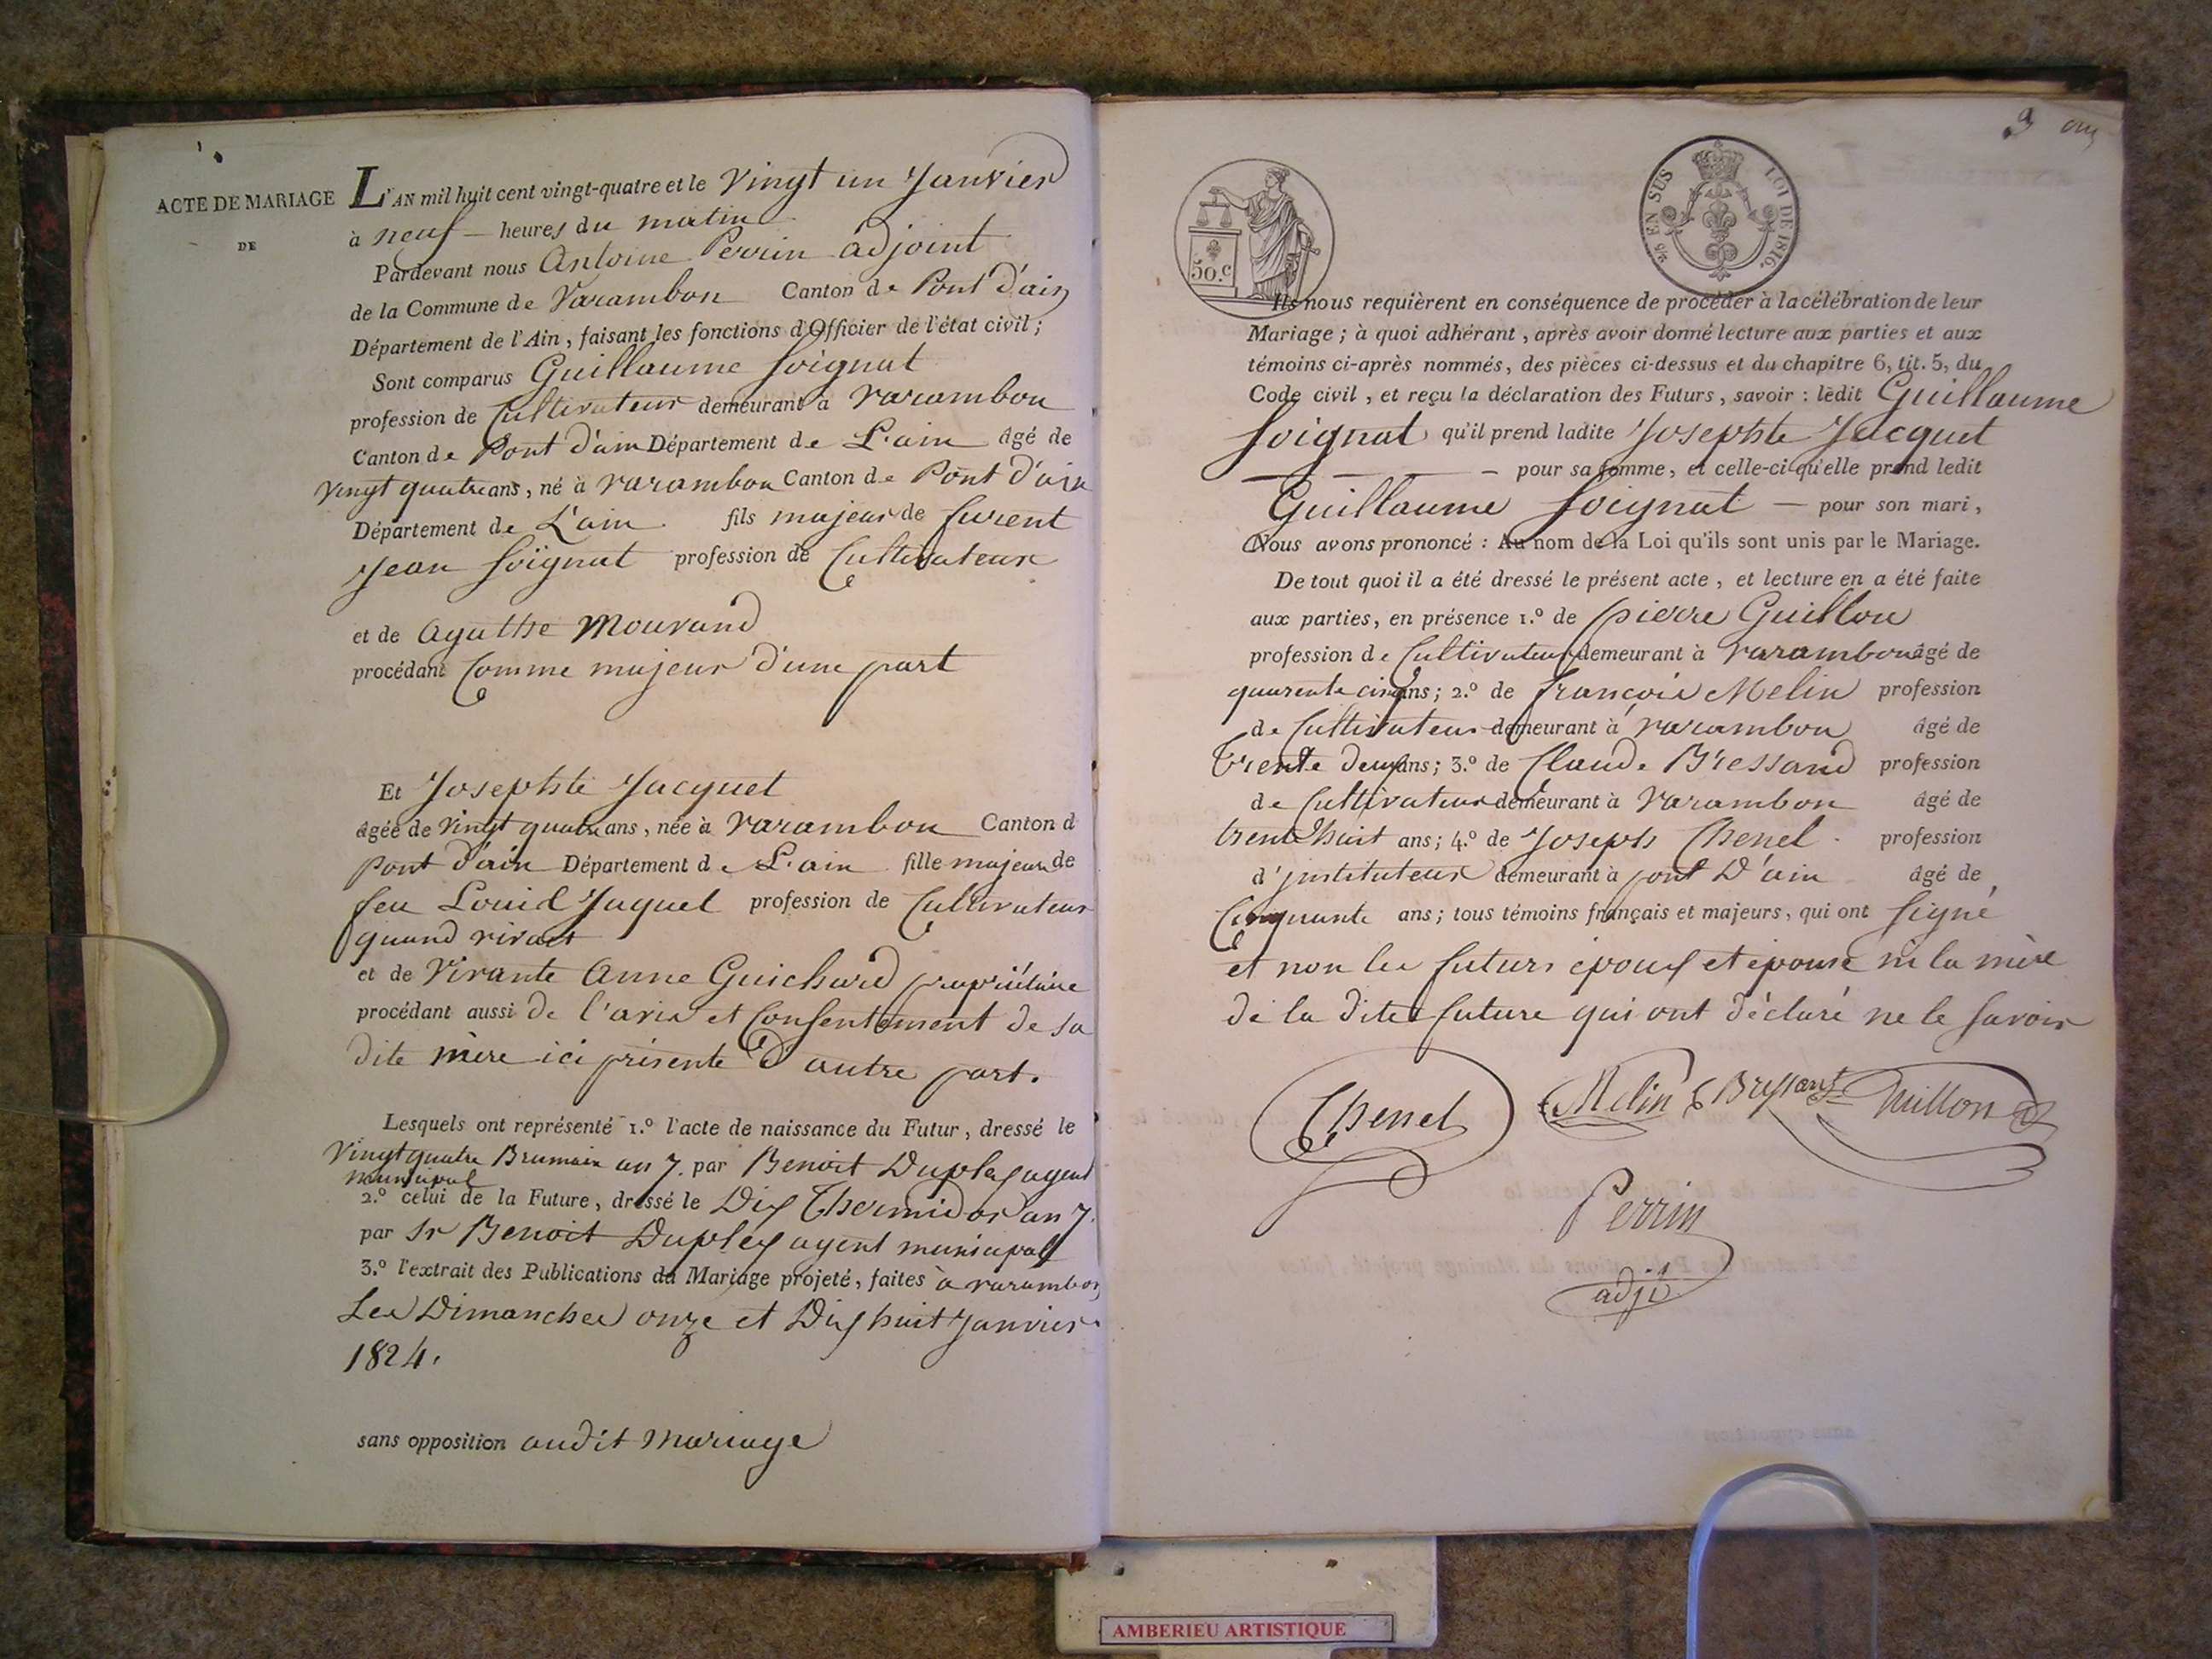 ACTE DE MARIAGE
DE
L'AN mil huit cent vingt-quatre et le Vingt un Janvier
à neuf heures du matin
Pardevant nous Antoine Perrin adjoint
de la Commune de Varambon Canton de Pont d'ain
Département de l'Ain, faisant les fonctions d'Officier de l'état civil;
Sont comparus Guillaume Soignat
profession de Cultivateur demeurant à Varambon
Canton de Pont d'ain Département de L'ain âgé de
Vingt quatre ans, né à Varambon Canton de Pont d'ain
Département de L'ain fils majeur de furent
Jean Soignat profession de Cultivateur
et de Agathe Mourand
procédant Comme majeur d'une part
Et Josephte Jacquet
âgée de Vingt quatre ans, née à Varambon Canton d
Pont d'ain Département de L'ain fille majeure de
feu Louis Jaquet profession de Cultivateur
quand vivait
et de Vivante Anne Guichard propriétaire
procédant aussi de l'avis et Consentement de sa
dite mère ici présente d'autre part.
Lesquels ont représenté 1.º l'acte de naissance du Futur, dressé le
Vingt quatre Brumaire an 7. par Benoit Dupley agent
municipal
2.º celui de la Future, dressé le Dix Thermidor an 7.
par Sr Benoit Dupley agent municipal
3.º l'extrait des Publications du Mariage projeté, faites à varambon
Les Dimanches onze et Dix huit Janvier
1824.
sans opposition audit Mariage
3
50.c
EN SUS LOI DE 1816.
Ils nous requièrent en conséquence de procéder à la célébration de leur
Mariage; à quoi adhérant, après avoir donné lecture aux parties et aux
témoins ci-après nommés, des pièces ci-dessus et du chapitre 6, tit. 5, du
Code civil, et reçu la déclaration des Futurs, savoir: ledit Guillaume
Soignat qu'il prend ladite Josephte Jacquet
pour sa femme, et celle-ci qu'elle prend ledit
Guillaume Soignat — pour son mari,
Nous avons prononcé: Au nom de la Loi qu'ils sont unis par le Mariage.
De tout quoi il a été dressé le présent acte, et lecture en a été faite
aux parties, en présence 1.º de pierre Guillon
profession de Cultivateur demeurant à Varambon âgé de
quarente cinq ans; 2.º de françois Melin profession
de Cultivateur demeurant à Varambon âgé de
Trente deux ans; 3.º de Claude Bressand profession
de Cultivateur demeurant à Varambon âgé de
trente huit ans; 4.º de Joseph Chenel profession
d'instituteur demeurant à pont D'ain âgé de
Cinquante ans; tous témoins français et majeurs, qui ont signé
et non les futurs époux et épouse ni la mère
de la dite future qui ont déclaré ne le savoir
Chenel Melin Bressant Guillon
Perrin
adjt
AMBERIEU ARTISTIQUE